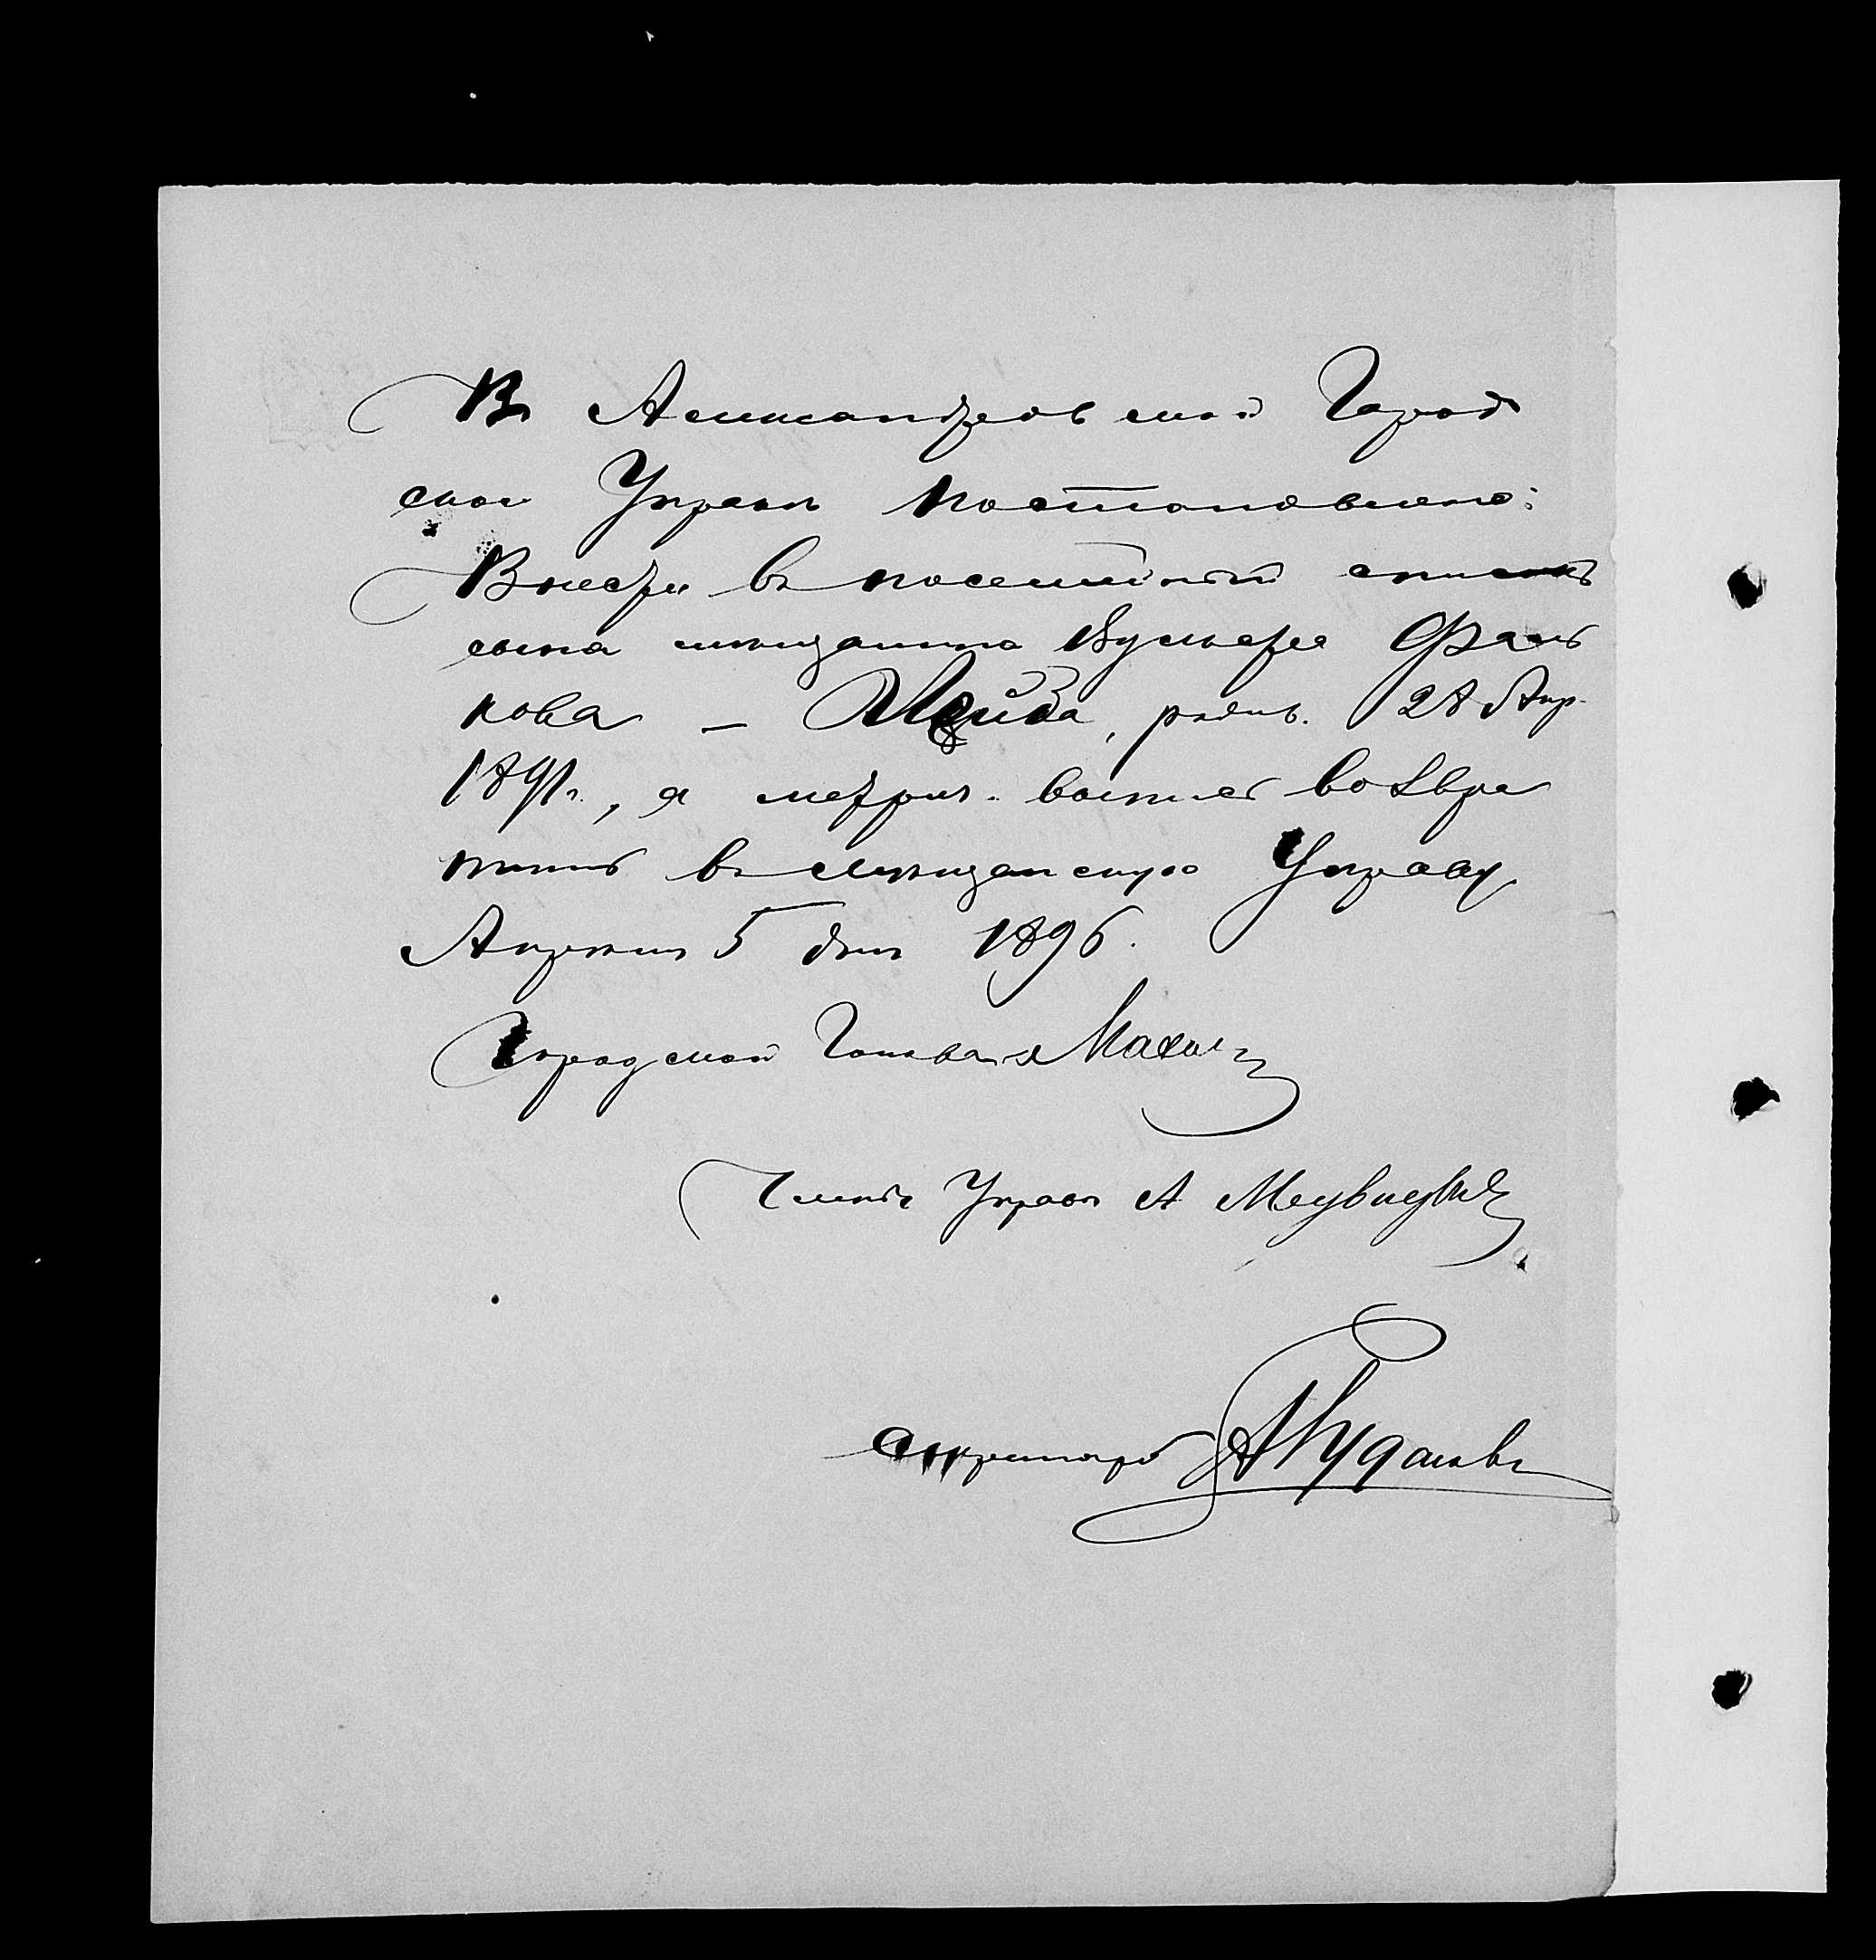 Въ Александровской Город
ской Управѣ постановлено:
Внести въ посемейный списокъ
сына мѣщанина Кусьера Фаль
кова – Лейба, родив. 28 Апр.
1891 г., а метрич. выпись возвра
тить въ Мѣщанскую Управу
Апрѣля 5 дня 1896.
Городской Голова Махин
Членъ Управы А Медвидев
Секретарь А Рудаковъ